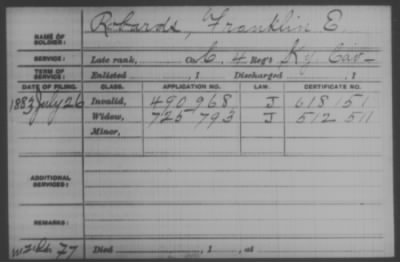 NAME OF SOLDIER: Robards, Franklin E.
SERVICE: Late rank, Co. C, 4 Reg't Ky Cav
TERM OF SERVICE: Enlisted , 1 Discharged , 1
DATE OF FILING. CLASS. APPLICATION NO. LAW. CERTIFICATE NO.
1883 July 26 Invalid, 490 968 J 618 151
Widow, 725 793 J 512 511
Minor,
ADDITIONAL SERVICES:
REMARKS:
77 Died , 1 , at